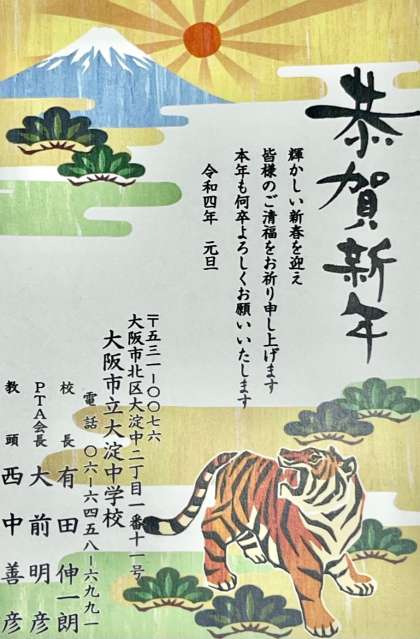 恭賀新年
輝かしい新春を迎え
皆様のご清福をお祈り申し上げます
本年も何卒よろしくお願いいたします
令和四年 元旦
〒五三一-〇〇七六
大阪市北区大淀中二丁目一番十一号
大阪市立大淀中学校
電話 〇六-六四五八-六九九一
校長 有田伸一朗
PTA会長 大前明彦
教頭 西中善彦